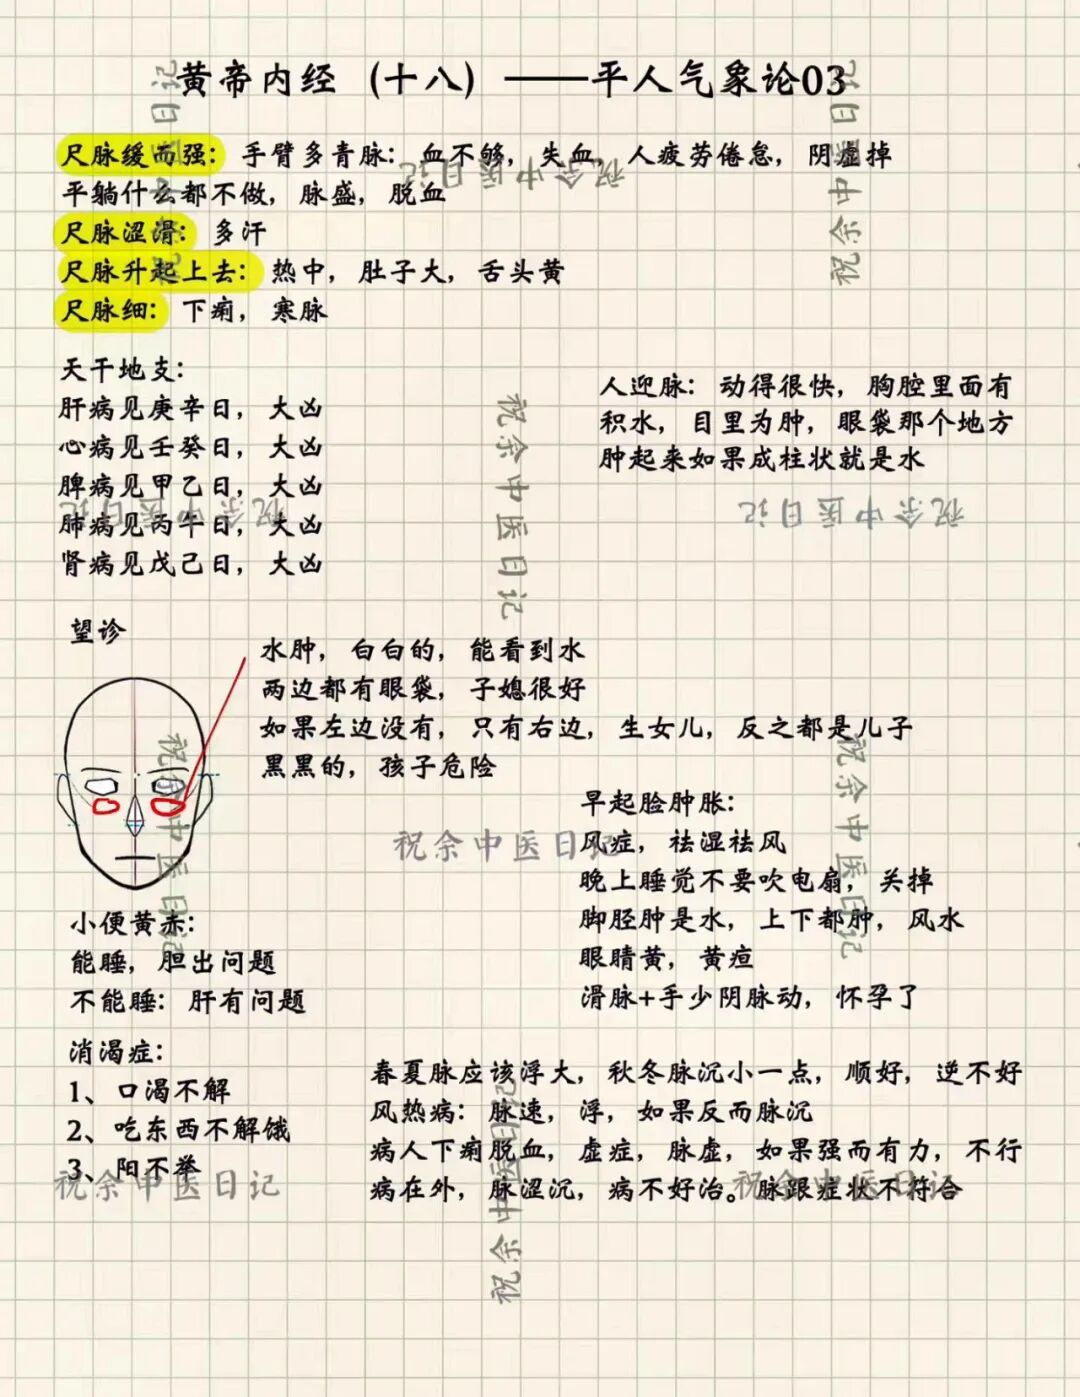 黄帝内经（十八）——平人气象论03
尺脉缓而强：手臂多青脉：血不够，失血，人疲劳倦怠，阴虚掉
平躺什么都不做，脉盛，脱血
尺脉涩滑：多汗
尺脉升起上去：热中，肚子大，舌头黄
尺脉细：下痢，寒脉
天干地支：
肝病见庚辛日，大凶
心病见壬癸日，大凶
脾病见甲乙日，大凶
肺病见丙午日，大凶
肾病见戊己日，大凶
人迎脉：动得很快，胸腔里面有
积水，目里为肿，眼袋那个地方
肿起来如果成柱状就是水
望诊
水肿，白白的，能看到水
两边都有眼袋，子媳很好
如果左边没有，只有右边，生女儿，反之都是儿子
黑黑的，孩子危险
早起脸肿胀：
风症，祛湿祛风
晚上睡觉不要吹电扇，关掉
脚胫肿是水，上下都肿，风水
眼睛黄，黄疸
滑脉+手少阴脉动，怀孕了
小便黄赤：
能睡，胆出问题
不能睡：肝有问题
消渴症：
1、口渴不解
2、吃东西不解饿
3、阳不举
春夏脉应该浮大，秋冬脉沉小一点，顺好，逆不好
风热病：脉速，浮，如果反而脉沉
病人下痢脱血，虚症，脉虚，如果强而有力，不行
病在外，脉涩沉，病不好治。脉跟症状不符合
祝余中医日记
祝余中医日记
祝余中医日记
祝余中医日记
祝余中医日记
祝余中医日记
祝余中医日记
祝余中医日记
祝余中医日记
祝余中医日记
祝余中医日记
祝余中医日记